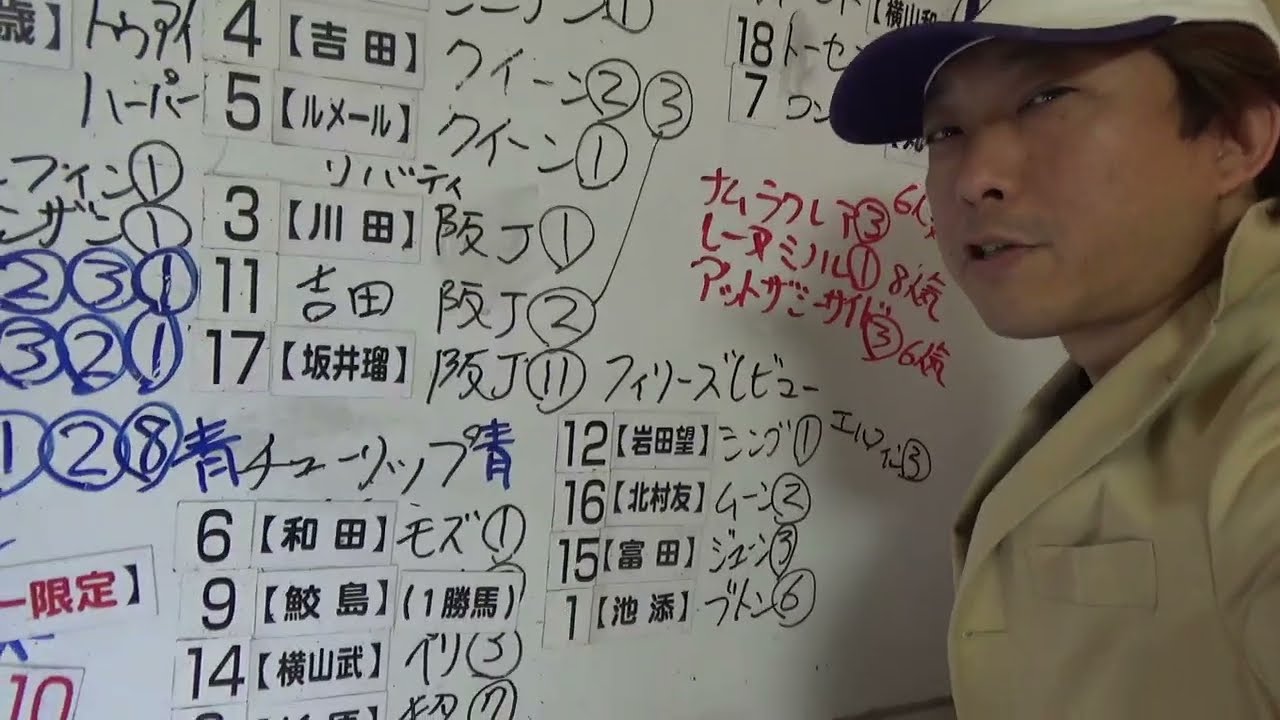 歳】トゥアイ 4【吉田】クイーン②
ハーパー 5【ルメール】クイーン① ③
フィン①
リバティ
3【川田】阪J①
②③① 11 吉田 阪J②
③②① 17【坂井瑠】阪J⑪ フィリーズレビュー
①②⑧青チューリップ青
6【和田】モズ①
9【鮫島】(1勝馬)
14【横山武】ペリ③
12【岩田望】シング① エルフィン③
16【北村友】ムーン②
15【富田】ジューン③
1【池添】ブトン⑥
【横山和
18 トーセン
7 コン
ナムラクレア③ 6人
レーヌミノル① 8人気
アットザミーサイド③ 6人気
ー限定】
10